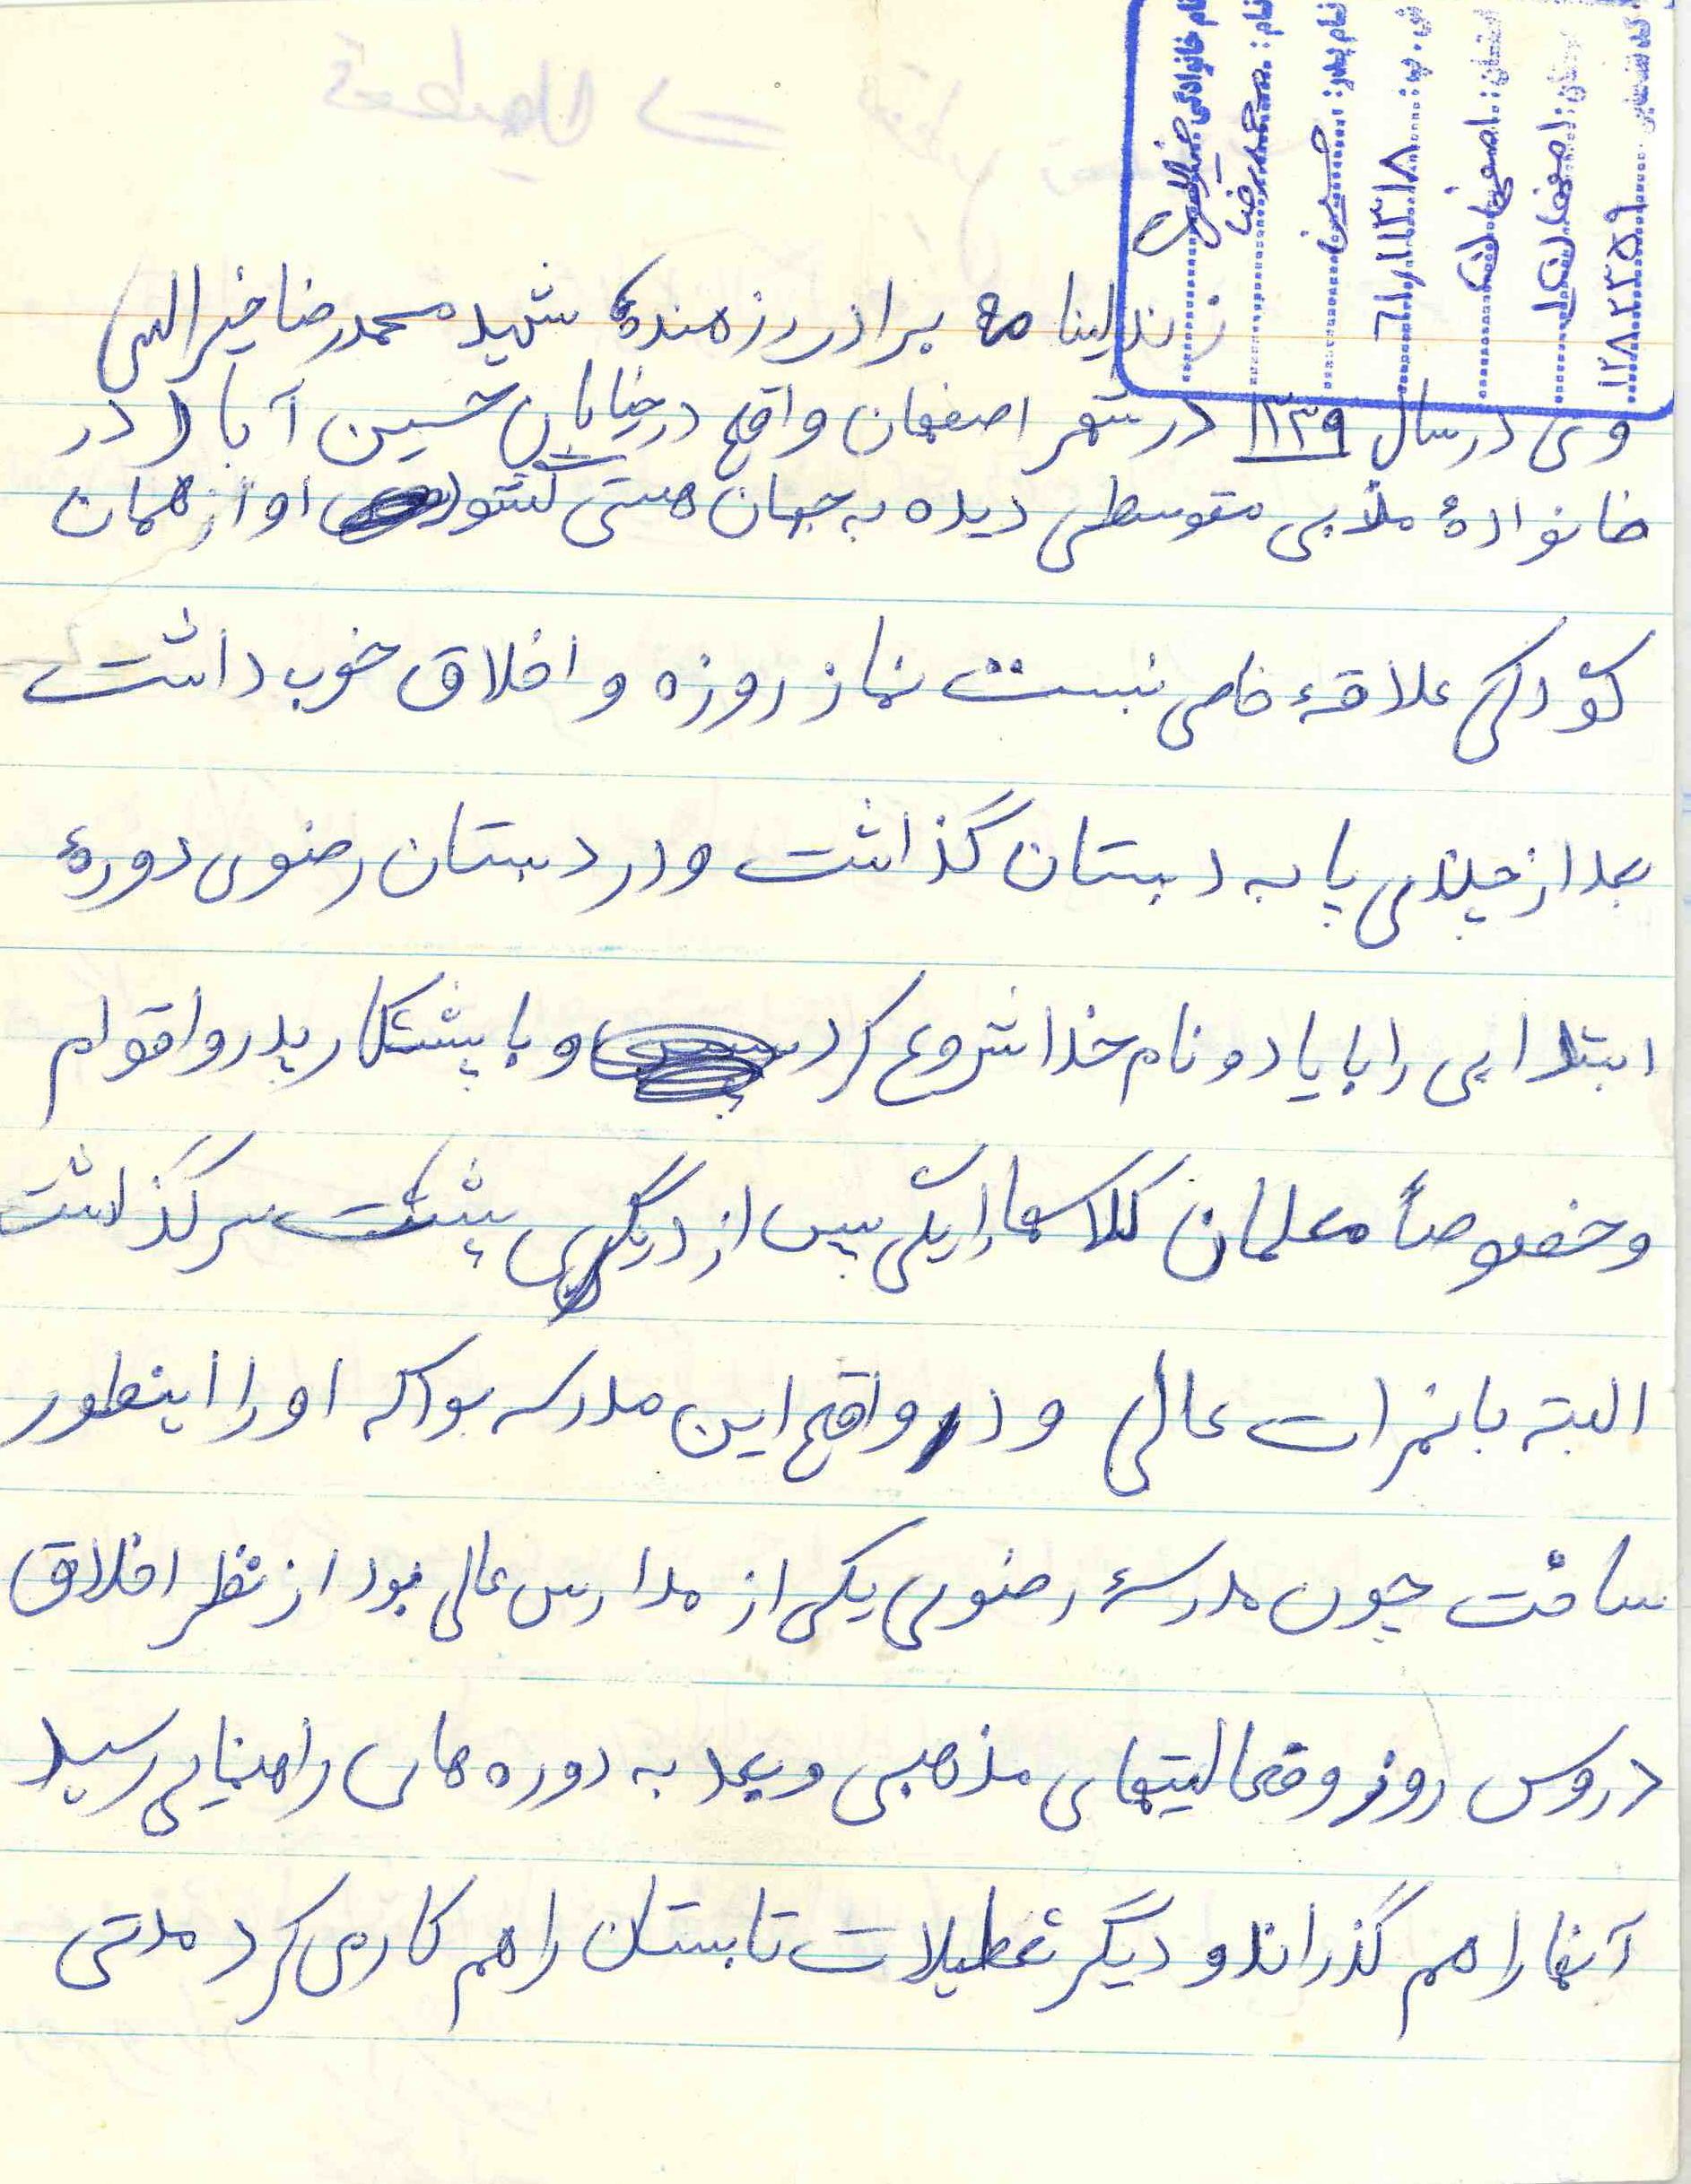 نام خانوادگی: خیراللهی
نام: محمدرضا
نام پدر: حسین
ش. پ: ۶۱،۱۳۱۸
استان: اصفهان
اصفهان ۱
کد شناسایی ۱۲۸۲۳۵۹
زندگینامه برادر رزمندهٔ شهید محمدرضا خیراللهی
وی در سال ۱۳۳۹ در شهر اصفهان واقع در خیابان حسین آباد در
خانوادهٔ مذبی متوسطی دیده به جهان هستی گشود او از همان
کودکی علاقهٔ خاصی نبست نماز روزه و اخلاق خوب داشت
بعد از چندی پا به دبستان گذاشت و در دبستان رضوی دورهٔ
ابتدایی را با یاد و نام خدا شروع کرد و با پشتکار پدر و اقوام
و خصوصاً معلمان کلاسها را یکی پس از دیگری پشت سر گذاشت
البته با نمرات عالی و در واقع این مدرسه بود که او را اینطور
ساخت چون مدرسهٔ رضوی یکی از مدارس عالی بود از نظر اخلاق
دروس روز و فعالیتهای مذهبی و بعد به دوره های راهنمایی رسید
آنها را هم گذراند و دیگر تعطیلات تابستان را هم کار می کرد مدتی